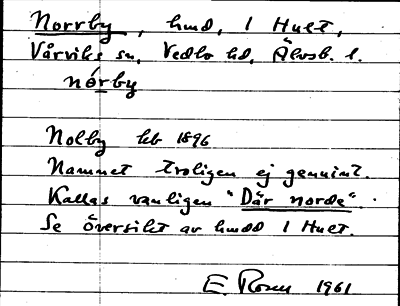 Norrby, hmd, 1 Hult,
Vårviks sn, Vedbo hd, Älvsb. l.
nórby
Nolby hb 1896
Namnet troligen ej genuint.
Kallas vanligen "Där norde".
Se översikt av hmdd 1 Hult.
E. Rosen 1961